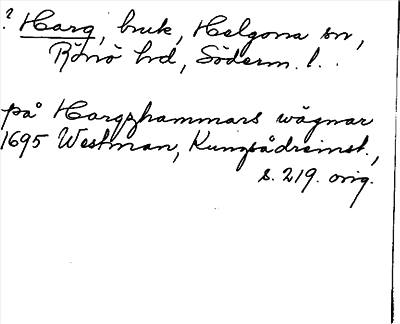 ? Harg, bruk, Helgona sn,
Rönö hd, Söderm. l.
på Hargzhammars wägnar
1695 Westman, Kungsådreinst.,
s. 219. orig.